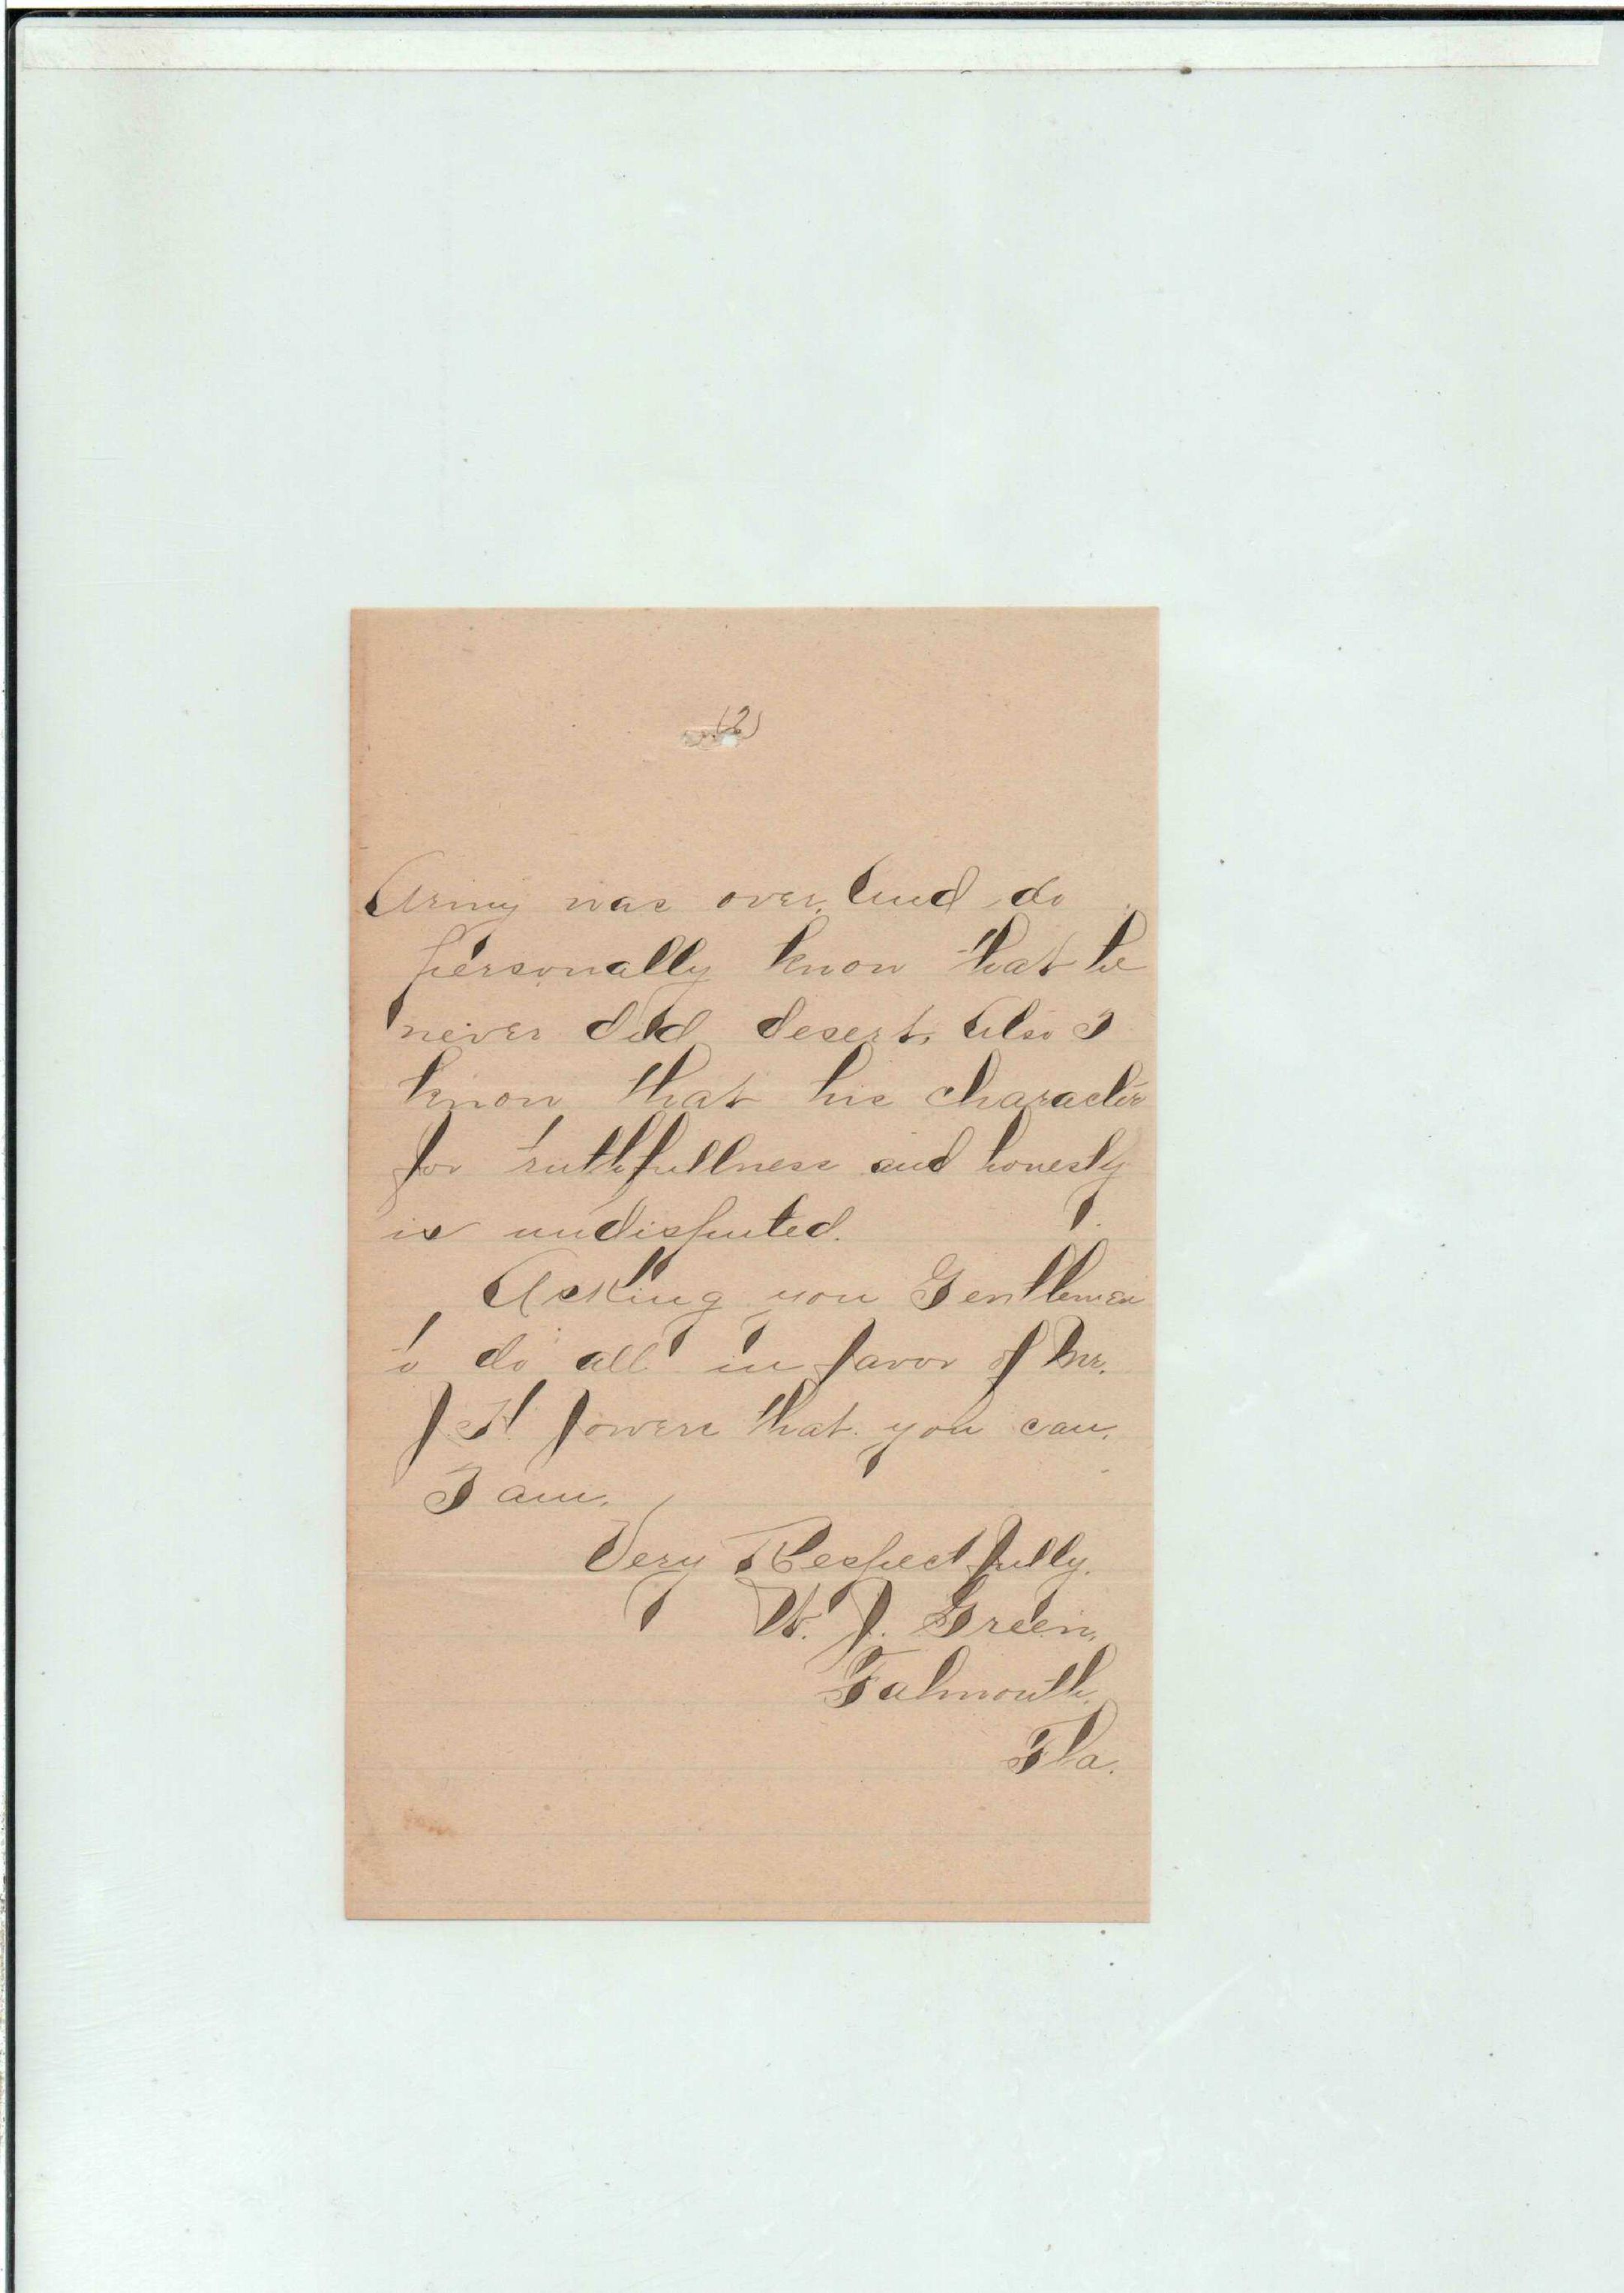 (2)
Army was over. And do
personally know that he
never did desert. Also I
know that his character
for truthfullness and honesty
is undisputed.
Asking you Gentlemen
to do all in favor of Mr.
J. H. Jowers that you can.
I am.
Very Respectfully.
W. J. Green.
Falmouth.
Fla.